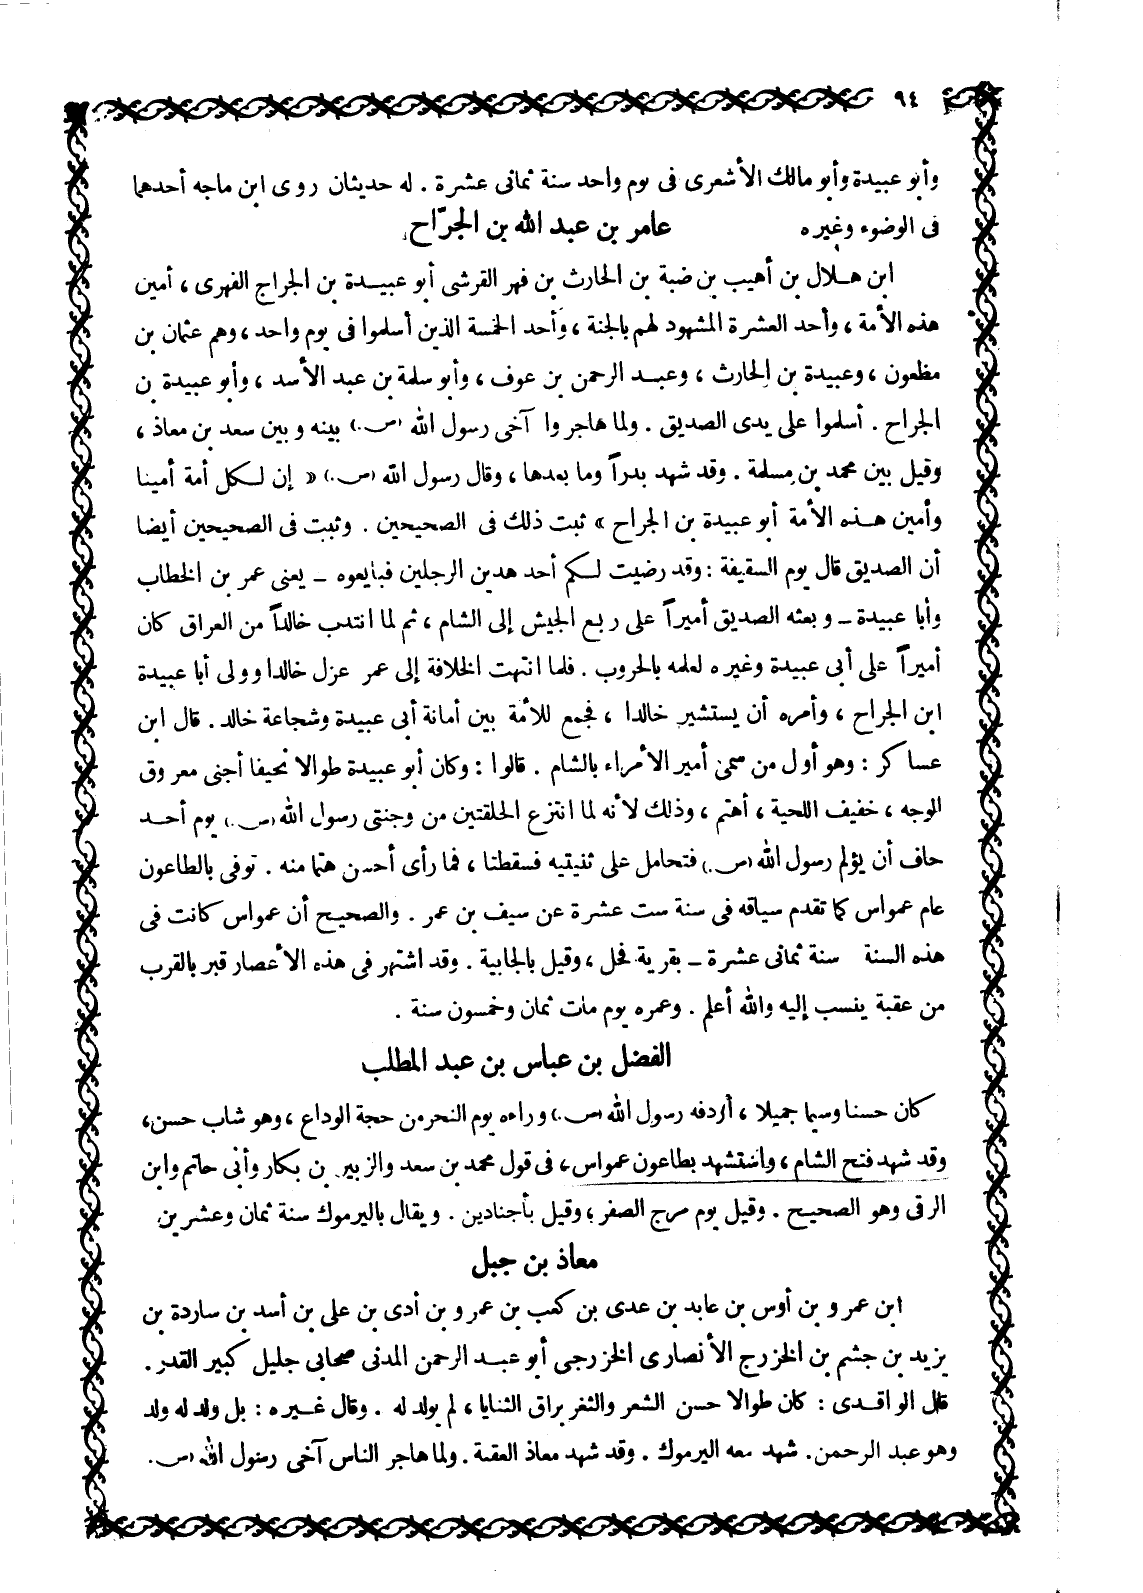 ٩٤
وأبو عبيدة وأبو مالك الأشعرى فى يوم واحد سنة ثمانى عشرة . له حديثان روى ابن ماجه أحدهما
فى الوضوء وغيره
عامر بن عبد الله بن الجرّاح
ابن هلال بن أهيب بن ضبة بن الحارث بن فهر القرشى أبو عبيدة بن الجراح الفهرى ، أمين
هذه الأمة ، وأحد العشرة المشهود لهم بالجنة ، وأحد الخمسة الذين أسلموا فى يوم واحد ، وهم عثمان بن
مظعون ، وعبيدة بن الحارث ، وعبد الرحمن بن عوف ، وأبو سلمة بن عبد الأسد ، وأبو عبيدة بن
الجراح . أسلموا على يدى الصديق . ولما هاجروا آخى رسول الله (ص.) بينه وبين سعد بن معاذ ،
وقيل بين محمد بن مسلمة . وقد شهد بدراً وما بعدها ، وقال رسول الله (ص.) « إن لكل أمة أمينا
وأمين هذه الأمة أبو عبيدة بن الجراح » ثبت ذلك فى الصحيحين . وثبت فى الصحيحين أيضا
أن الصديق قال يوم السقيفة : وقد رضيت لكم أحد هدين الرجلين فبايعوه ــ يعنى عمر بن الخطاب
وأبا عبيدة ــ وبعثه الصديق أميراً على ربع الجيش إلى الشام ، ثم لما انتدب خالداً من العراق كان
أميراً على أبى عبيدة وغيره لعلمه بالحروب . فلما انتهت الخلافة إلى عمر عزل خالدا وولى أبا عبيدة
ابن الجراح ، وأمره أن يستشير خالدا ، فجمع للأمة بين أمانة أبى عبيدة وشجاعة خالد . قال ابن
عساكر : وهو أول من سمى أمير الأمراء بالشام . قالوا : وكان أبو عبيدة طوالا نحيفا أجنى معروق
الوجه ، خفيف اللحية ، أهتم ، وذلك لأنه لما انتزع الحلقتين من وجنتى رسول الله (ص.) يوم أحد
خاف أن يؤلم رسول الله (ص.) فتحامل على ثنيتيه فسقطتا ، فما رأى أحسن هتما منه . توفى بالطاعون
عام عمواس كما تقدم سياقه فى سنة ست عشرة عن سيف بن عمر . والصحيح أن عمواس كانت فى
هذه السنة سنة ثمانى عشرة ــ بقرية فحل ، وقيل بالجابية . وقد اشتهر فى هذه الأعصار قبر بالقرب
من عقبة ينسب إليه والله أعلم . وعمره يوم مات ثمان وخمسون سنة .
الفضل بن عباس بن عبد المطلب
كان حسنا وسيما جميلا ، أردفه رسول الله (ص.) وراءه يوم النحر من حجة الوداع ، وهو شاب حسن ،
وقد شهد فتح الشام ، واستشهد بطاعون عمواس ، فى قول محمد بن سعد والزبير بن بكار وأبى حاتم وابن
الرقى وهو الصحيح . وقيل يوم مرج الصفر ، وقيل بأجنادين . ويقال باليرموك سنة ثمان وعشرين
معاذ بن جبل
ابن عمرو بن أوس بن عابد بن عدى بن كعب بن عمرو بن أدى بن على بن أسد بن ساردة بن
يزيد بن جشم بن الخزرج الأنصارى الخزرجى أبو عبد الرحمن المدنى صحابى جليل كبير القدر .
قال الواقدى : كان طوالا حسن الشعر والثغر براق الثنايا ، لم يولد له . وقال غيره : بل ولد له ولد
وهو عبد الرحمن . شهد معه اليرموك . وقد شهد معاذ العقبة . ولما هاجر الناس آخى رسول الله (ص.)